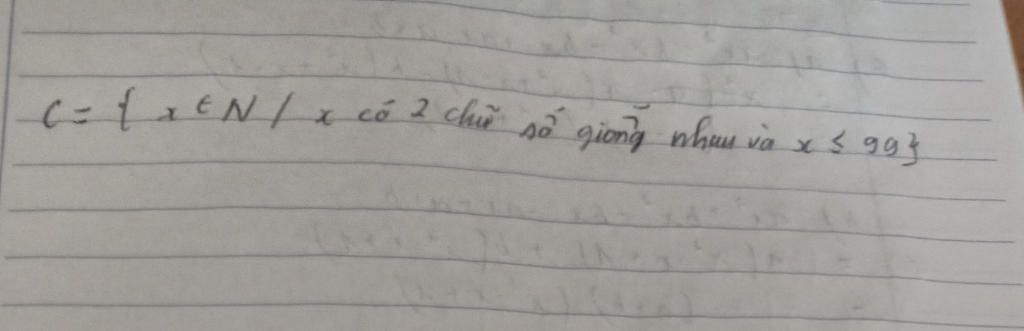 C = { x ∈ N / x có 2 chữ số giống nhau và x ≤ 99}